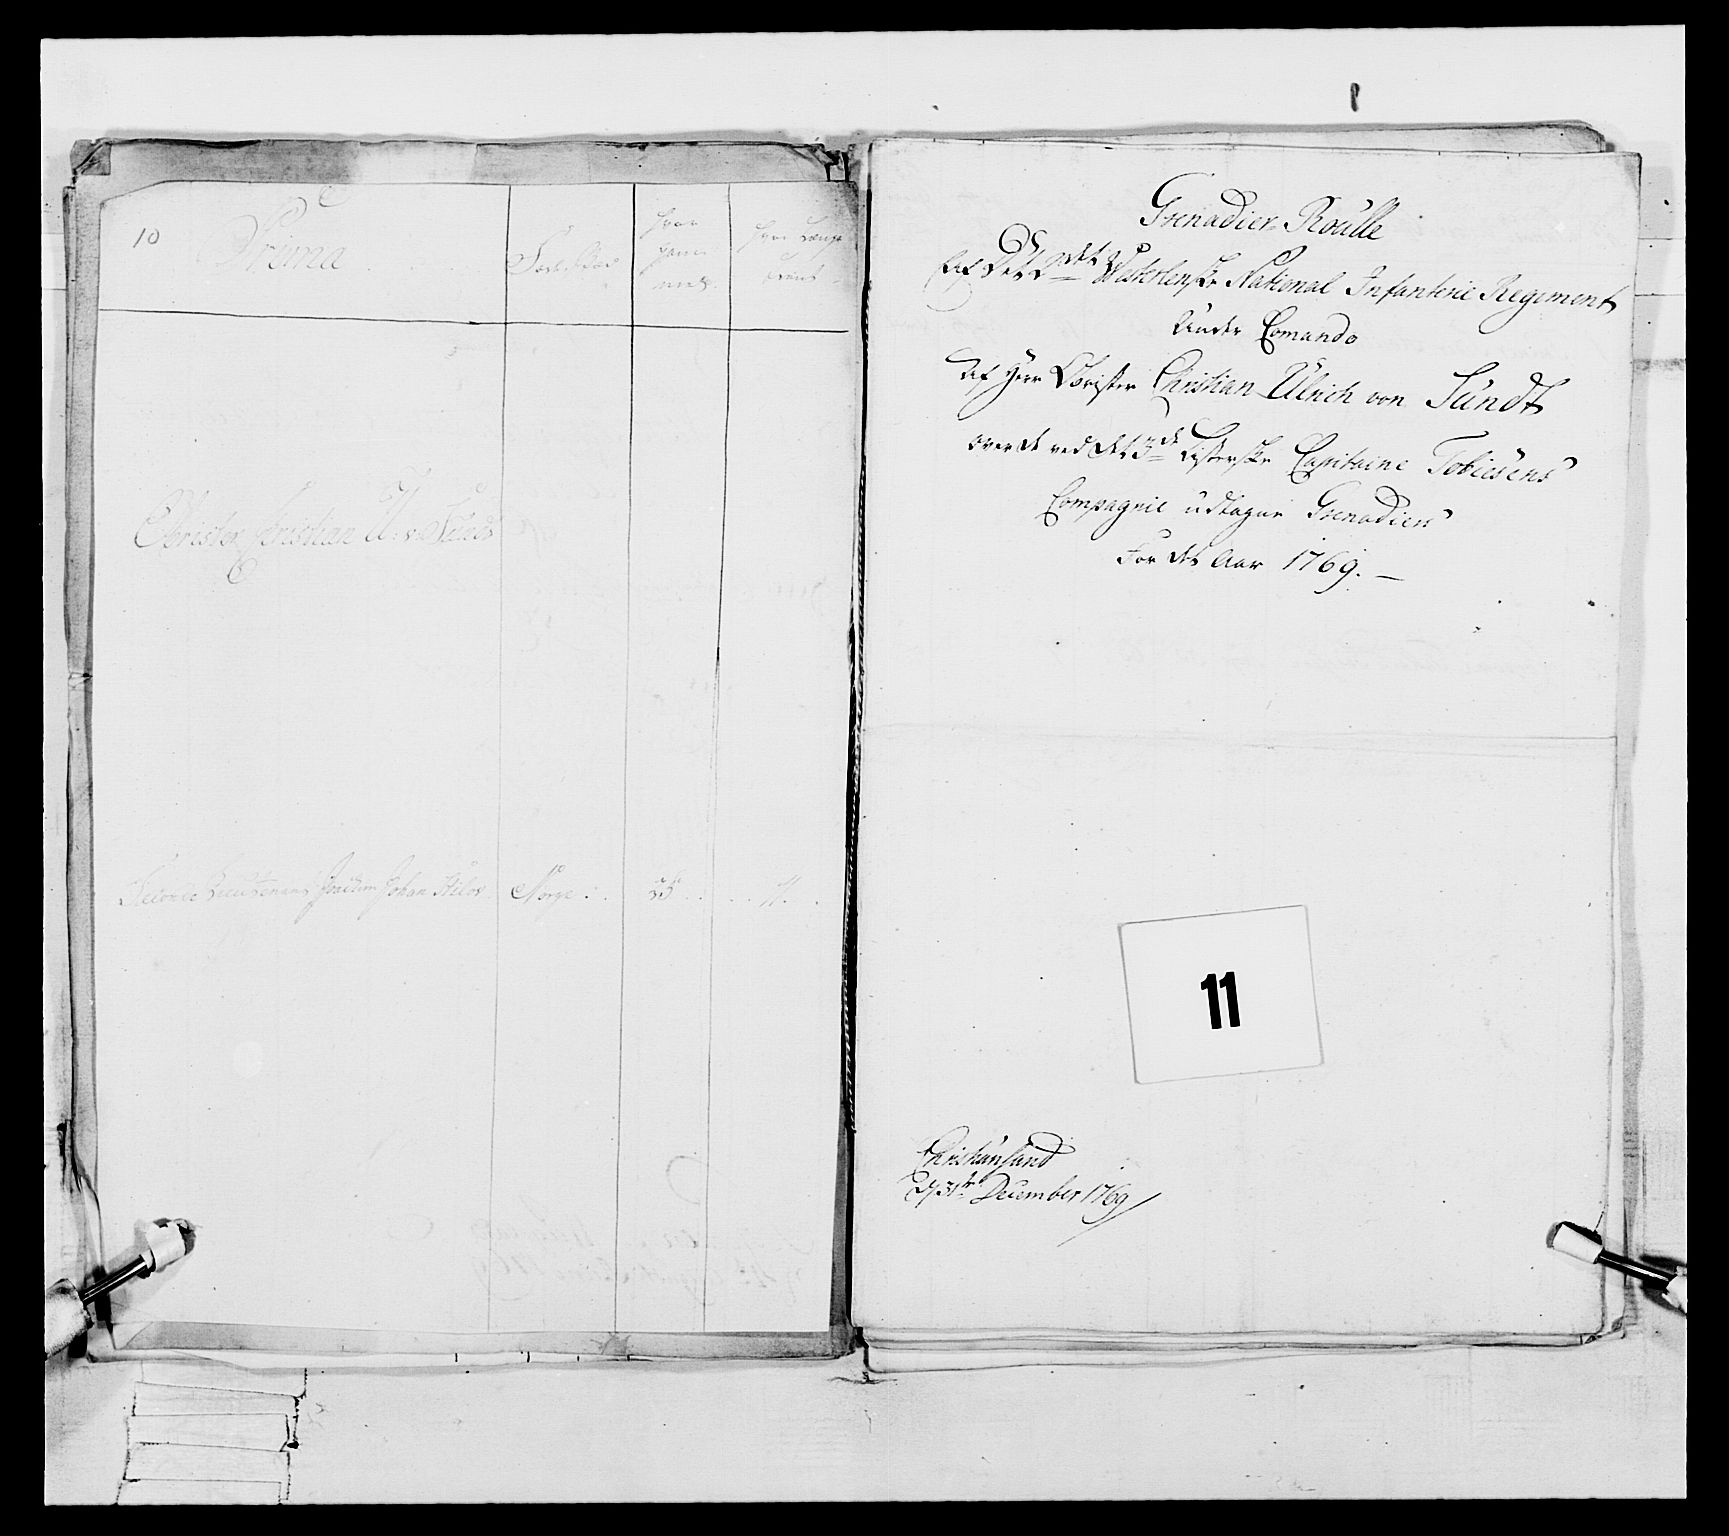 10
Prima
Føde Stæd
Hvor gammel
Hvor Længe tient
Obrister Cristian U: v: Sundt
Second Lieutenant Joachim Johan
Norge
25
11
Grenadier-Roulle
Af Det 2det Westerlenske National Infanterie Regiment
Under Comando
Af Herr Obrister Christian Ulrich von Sundt
over de ved det 3de Listerske Capitaine Tobiesens
Compagnie udtagne Grenadiers
For det Aar 1769.
11
Christiansand
d 31te December 1769